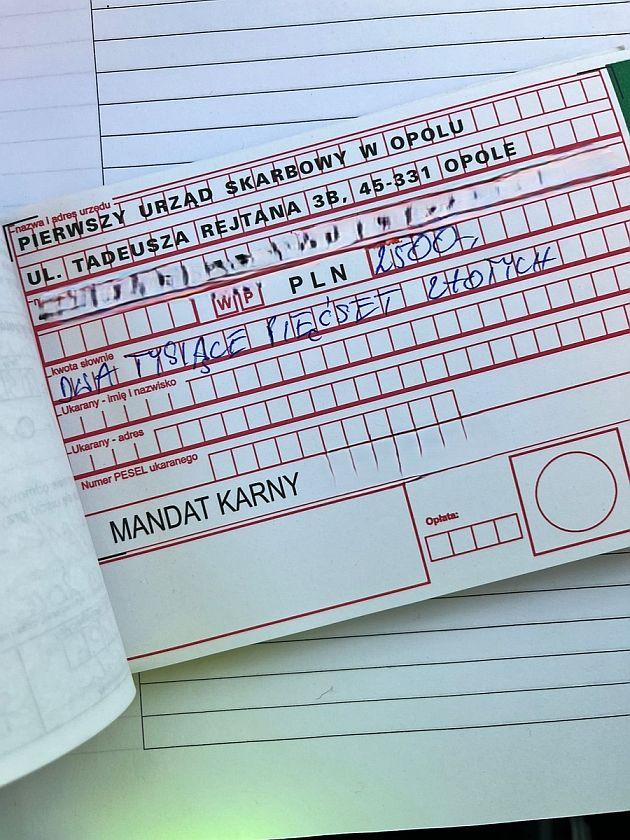 nazwa i adres urzędu
PIERWSZY URZĄD SKARBOWY W OPOLU
UL. TADEUSZA REJTANA 3B, 45-331 OPOLE
W P PLN 2500,-
kwota słownie
DWA TYSIĄCE PIĘĆSET ZŁOTYCH
Ukarany - imię i nazwisko
Ukarany - adres
Numer PESEL ukaranego
MANDAT KARNY
Opłata: